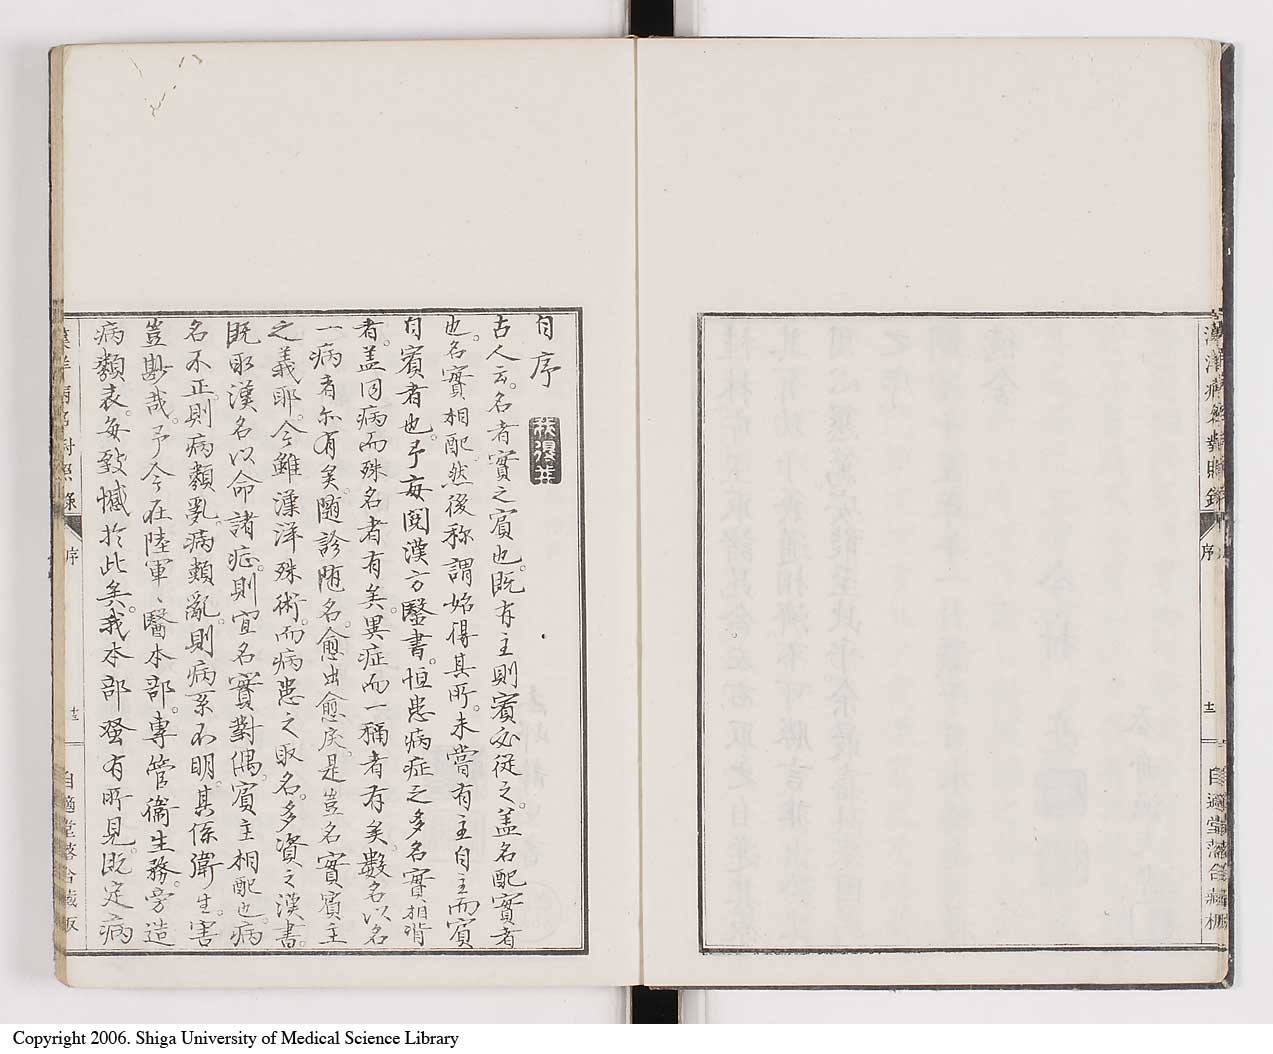 漢洋病名對照錄
序
十二
自適堂落合藏板
自序
古人云。名者實之賓也。既有主則賓必從之。盖名配實者
也。名實相配。然後称謂始得其所。未嘗有主自主而賓
自賓者也。予每閲漢方醫書。恒患病症之多名實相背
者。盖同病而殊名者有矣。異症而一稱者有矣。數名以名
一病者亦有矣。随診随名。愈出愈戻。是豈名實賓主
之義耶。今雖漢洋殊術。而病患之取名。多資之漢書。
既取漢名以命諸症。則宜名實對偶。賓主相配也。病
名不正。則病類乱。病類亂。則病系不明。其係衛生。害
豈尠哉。予今在陸軍、醫本部。專管衞生務。旁造
病類表。毎致憾於此矣。我本部蚤有所見。既定病
漢洋病名對照錄
序
十三
自適堂落合藏版
Copyright 2006. Shiga University of Medical Science Library